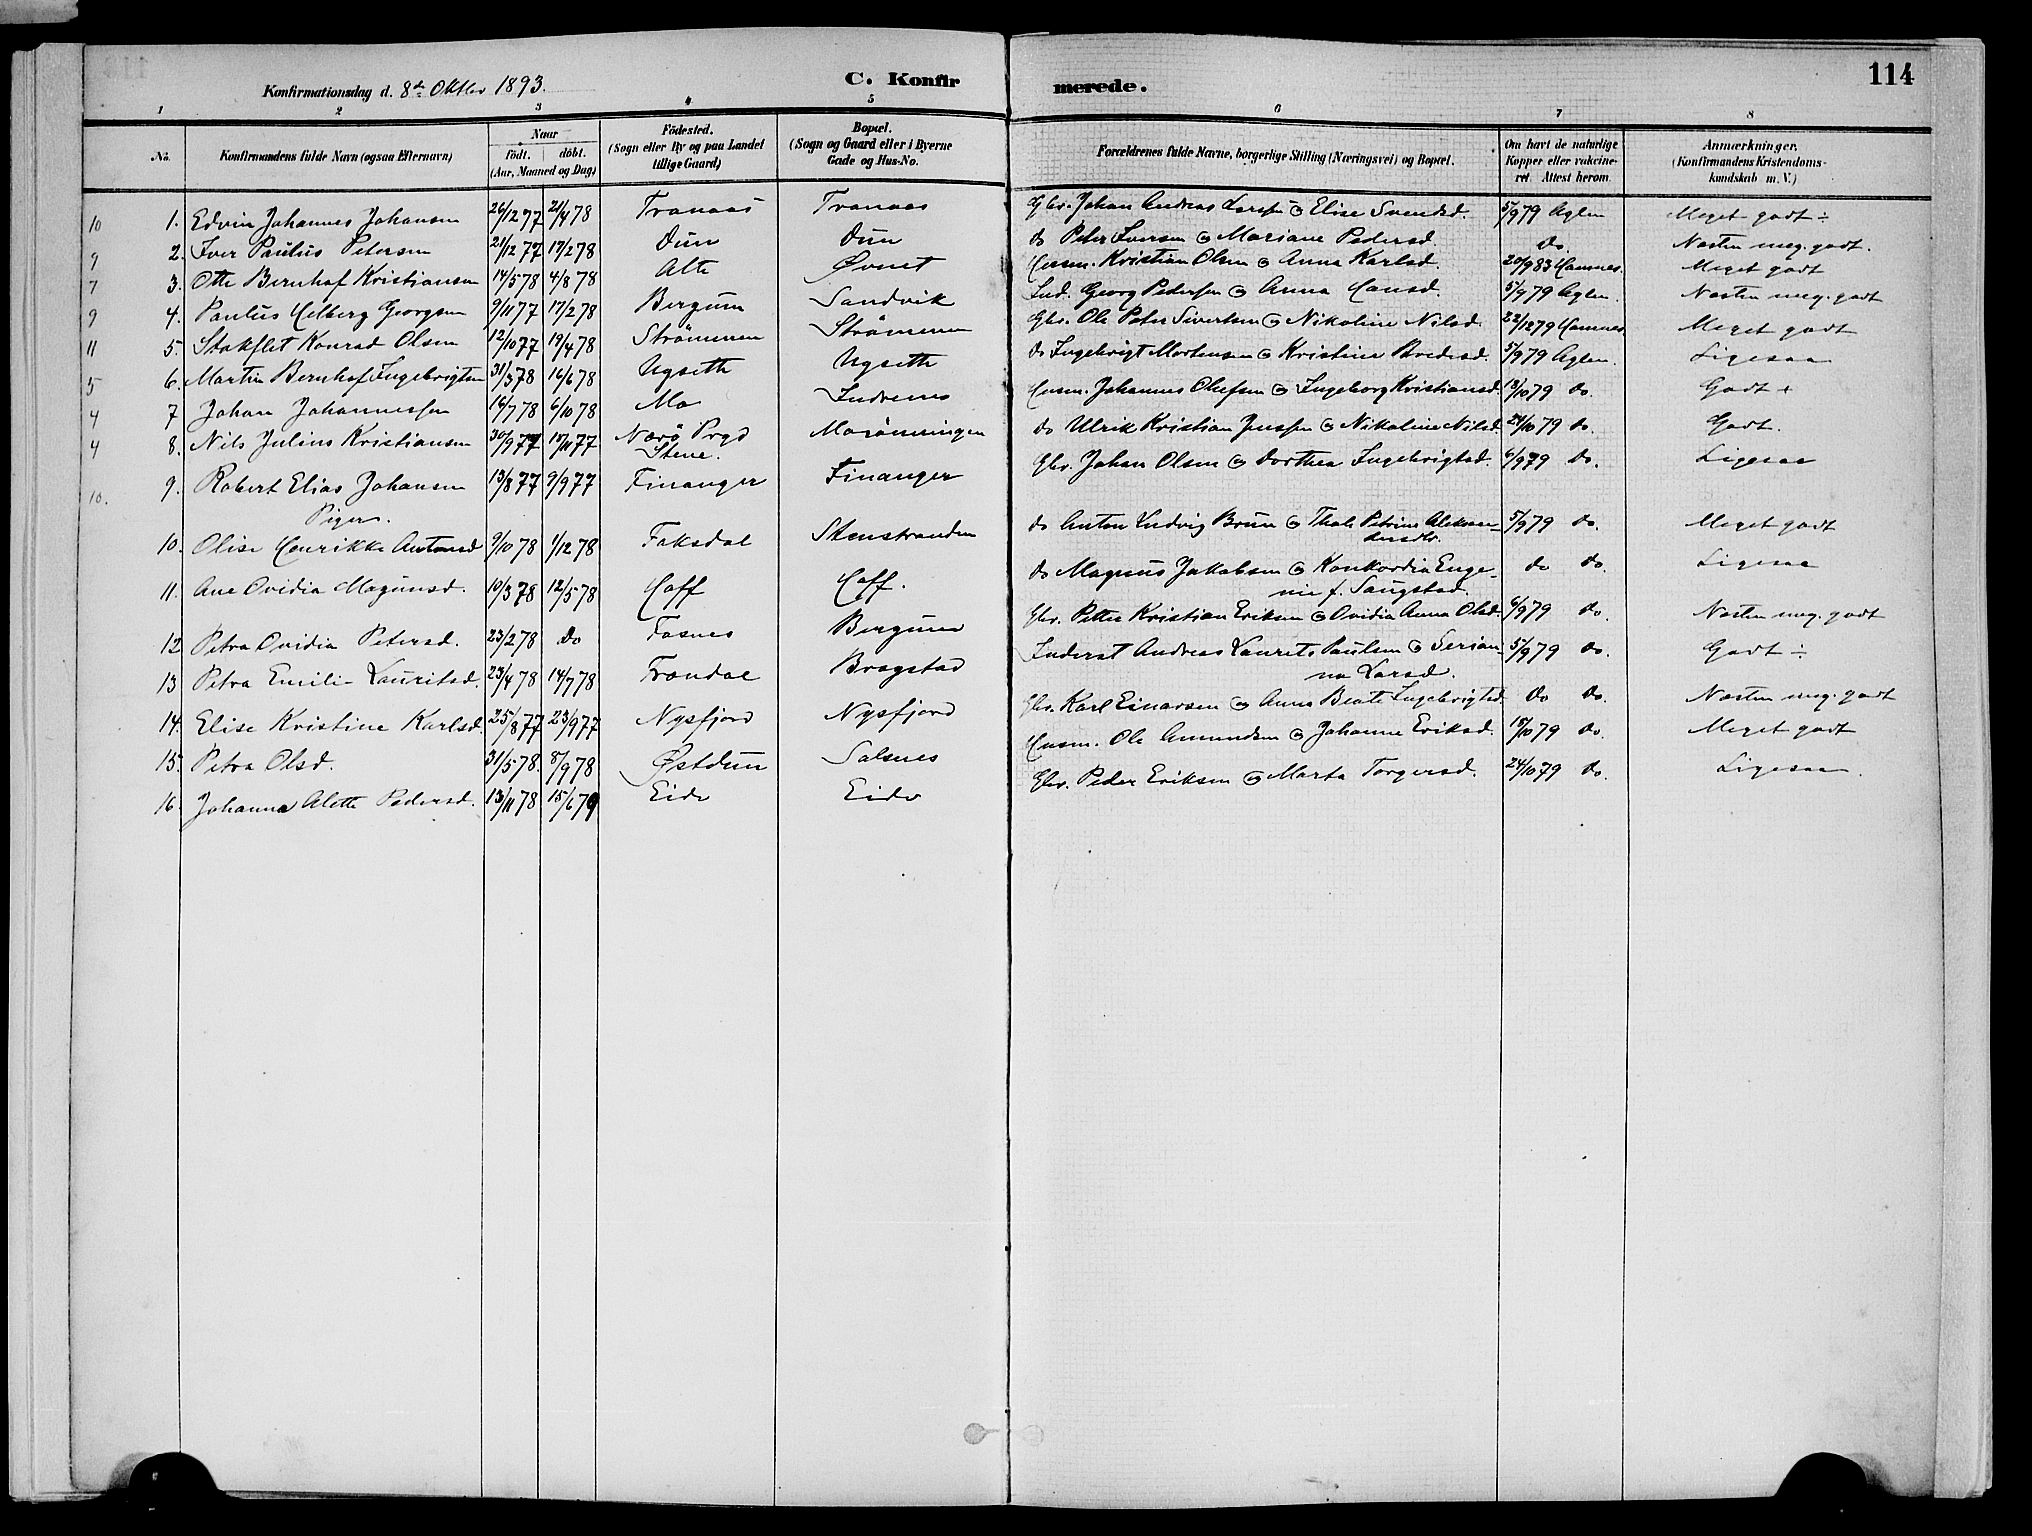 114
Konfirmationsdag d. 8de Oktbr 1893. C. Konfir merede.
1 2 3 4 5 6 7 8
No. Konfirmandens fulde Navn (ogsaa Efternavn) Naar födt. döbt. (Aar, Maaned og Dag) Födested. (Sogn eller By og paa Landet tillige Gaard) Bopæl. (Sogn og Gaard eller i Byerne Gade og Hus-No. Forældrenes fulde Navne, borgerlige Stilling (Næringsvei) og Bopæl. Om havt de naturlige Kopper eller vakcineret. Attest herom. Anmærkninger. (Konfirmandens Kristendomskundskab m. V.)
10 1. Edvin Johannes Johansen 26/12 77 21/4 78 Tranaas Tranaas Gbr. Johan Andreas Larssen & Elise Svendsd. 5/9 79 Aglen Meget godt ÷
9 2. Iver Paulus Petersen 21/12 77 17/2 78 Dun Dun do Peter Iversen & Mariane Pedersd. do. Næsten meg. godt.
7 3. Otte Bernhof Kristiansen 14/5 78 4/8 78 Alte Øvnet Husm. Kristian Olsen & Anna Karlsd. 20/9 83 Hamnes. Meget godt
9 4. Paulus Helberg Georgsen 9/11 77 17/2 78 Bergum Sandvik Ind. Georg Pedersen & Anna Hansd. 5/9 79 Aglen. Næsten meg. godt
11 5. Stokflet Konrad Olsen 12/10 77 19/4 78 Strömmen Strömmen Gbr. Ole Peter Sivertsen & Nikoline Nilsd. 22/12 79 Hamnes Meget godt
5 6. Martin Bernhof Ingebrigtsen 31/3 78 16/6 78 Ugseth Ugseth do Ingebrigt Mortensen & Kristine Bredesd. 5/9 79 Aglen. Ligesaa
4 7 Johan Johannessen 16/7 78 6/10 78 Mo Indrenes Husm. Johannes Olufsen & Ingeborg Kristiansd. 13/10 79 do. Godt +
4 8. Nils Julius Kristiansen 30/9 77 15/11 77 Nærö Prgd Stene. do Ulrik Kristian Jenssen & Nikoline Nilsd. 24/10 79 do. Godt.
10. 9. Robert Elias Johansen 13/8 77 9/9 77 Finanger Finanger Gbr. Johan Olsen & Dorthea Ingebrigtsd. 6/9 79 do. Ligesaa
Piger.
10. Olise Henrikke Antonsd 9/10 78 1/12 78 Faksdal Stenstranden do Anton Ludvig Brun & Thale Petrine Aleksandersdtr. 5/9 79 do. Meget godt
11. Ane Ovidia Magnusd. 10/3 78 12/5 78 Hoff Hoff. do Magnus Jakobsen & Konkordia Engenie f. Saugstad. do do. Ligesaa
12 Petra Ovidia Petersd. 23/2 78 do Fosnes Bergum Gbr. Petter Kristian Eriksen & Ovidia Anna Olsd. 6/9 79 do. Næsten meg. godt
13 Petra Emilie Lauritsd. 23/4 78 14/7 78 Frondal Bragstad Inderst Andreas Laurits Paulsen & Serianna Larsd. 5/9 79 do. Godt ÷
14. Elise Kristine Karlsd. 25/8 77 23/9 77 Nysfjord Nysfjord Gbr. Karl Einarsen & Anna Beate Ingebrigtsd. do do. Næsten meg. godt
15. Petra Olsd. 31/5 78. 8/9 78 Østdun Salsnes Husm. Ole Amundsen & Johanne Eriksd. 15/10 79 do. Meget godt
16. Johanna Alette Pedersd. 13/11 78 15/6 79 Eide Eide Gbr. Peder Eriksen & Marta Torgersd. 24/10 79 do. Ligesaa.